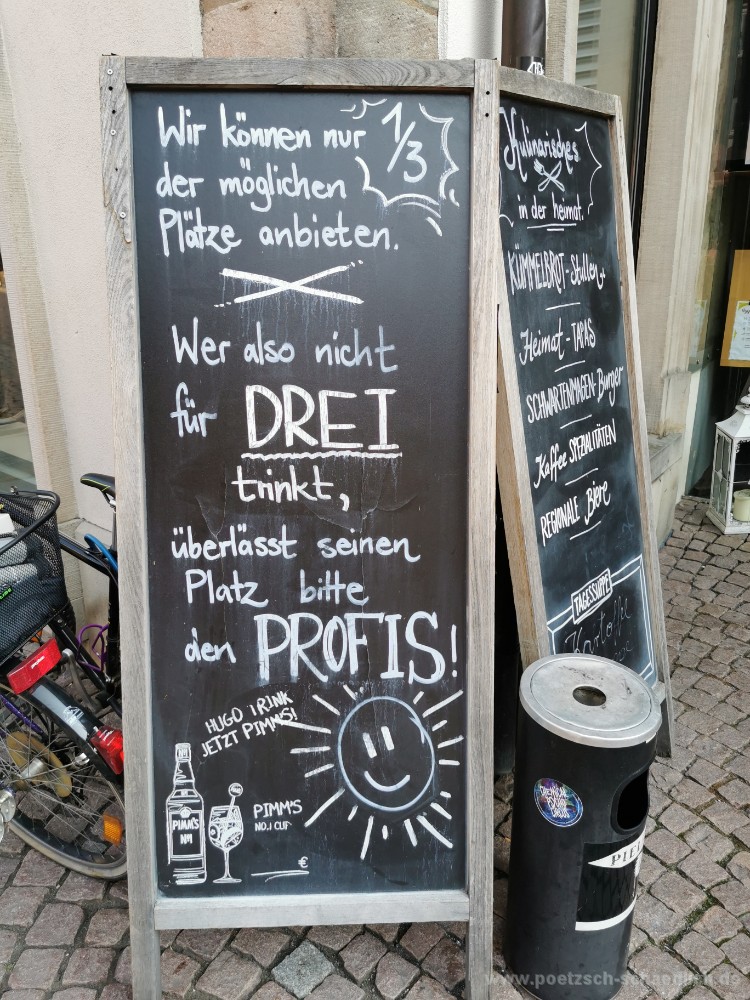 Wir können nur 1/3
der möglichen
Plätze anbieten.
Wer also nicht
für DREI
trinkt,
überlässt seinen
Platz bitte
den PROFIS!
HUGO TRINK
JETZT PIMM'S!
PIMM'S
Nº1
PIMM'S
NO.1 CUP
€
Kulinarisches
in der heimat.
KÜMMELBROT-Stullen
Heimat-TAPAS
SCHWARTENMAGEN-Burger
Kaffee SPEZIALITÄTEN
REGIONALE Biere
TAGESSUPPE
www.poetzsch-schaedlich.de